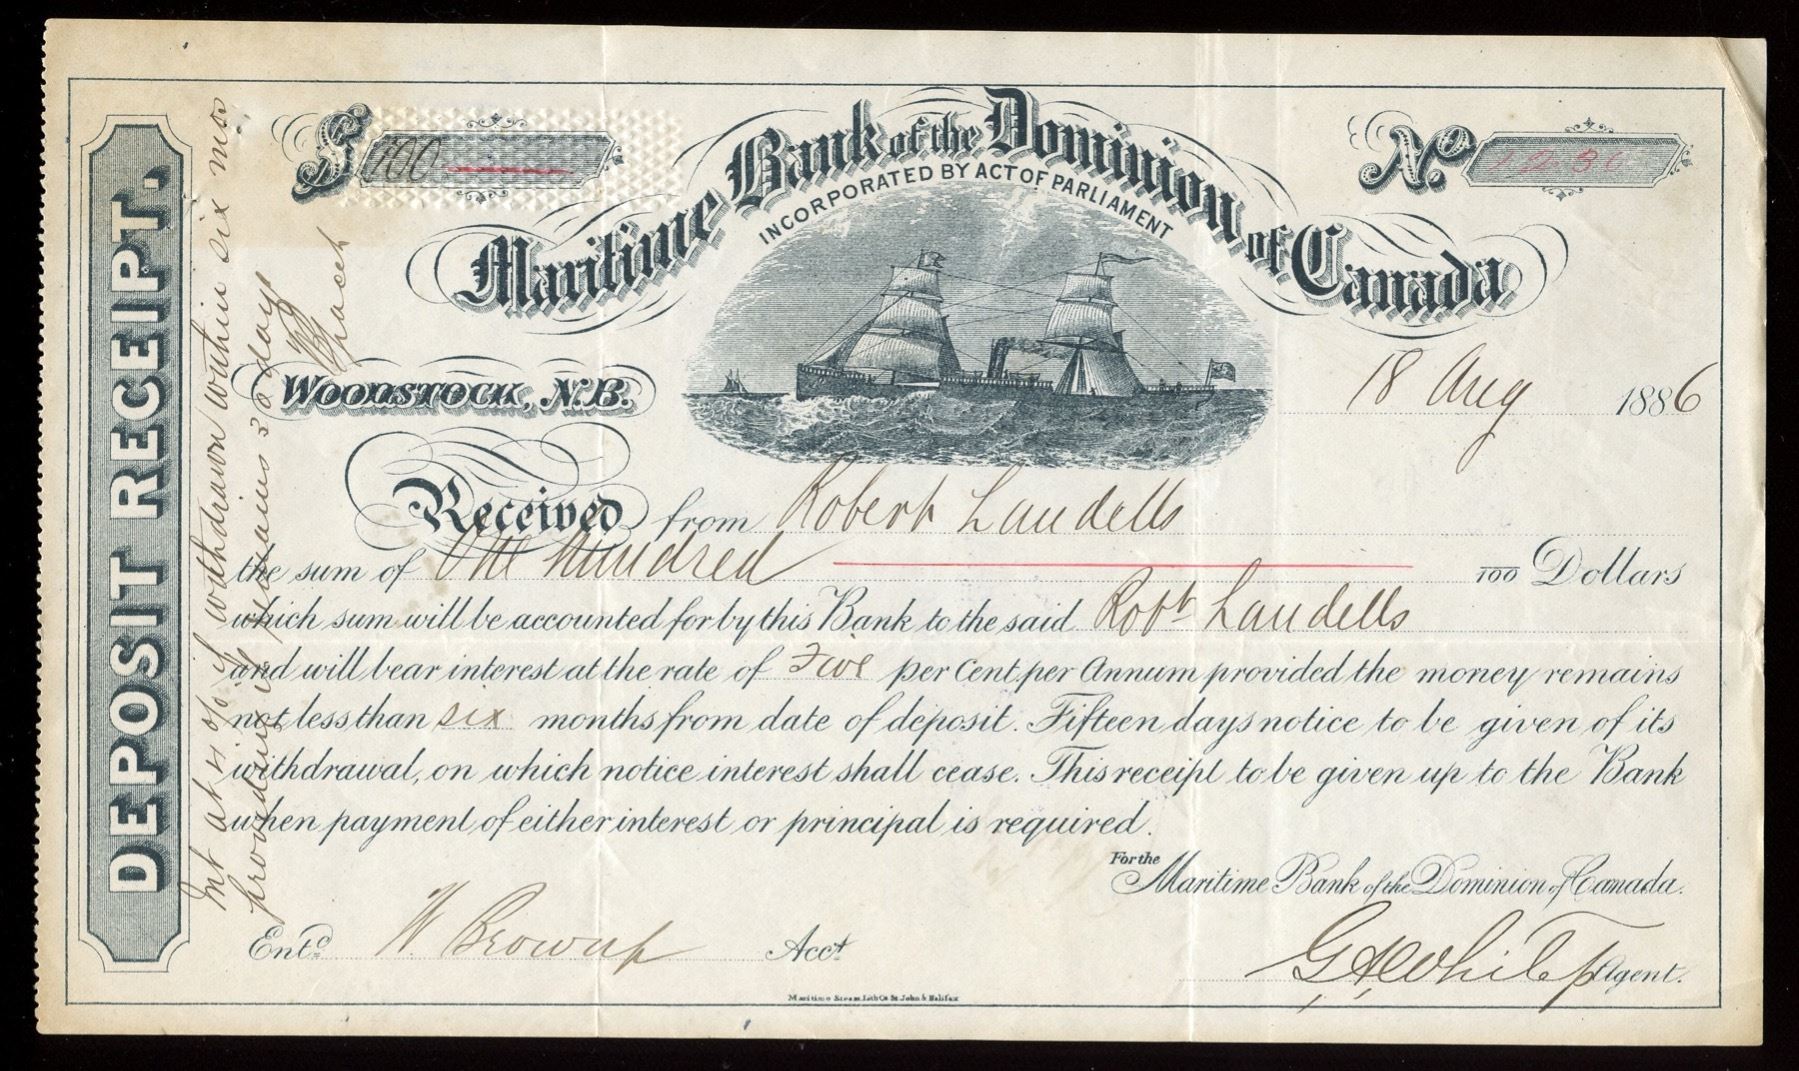 DEPOSIT RECEIPT.
$ 100
No. 1236
Maritime Bank of the Dominion of Canada
INCORPORATED BY ACT OF PARLIAMENT
WOODSTOCK, N.B.
18 Aug 1886
Received from Robert Landells
the sum of One hundred 100 Dollars
which sum will be accounted for by this Bank to the said Robt Landells
and will bear interest at the rate of Five per Cent. per Annum provided the money remains
not less than six months from date of deposit. Fifteen days notice to be given of its
withdrawal, on which notice interest shall cease. This receipt to be given up to the Bank
when payment of either interest or principal is required.
For the
Maritime Bank of the Dominion of Canada.
Entd W. Brown Acct
Agent.
Maritime Steam Lith Co St. John & Halifax
Int at % if withdrawn within six mos
providing it remains 30 days